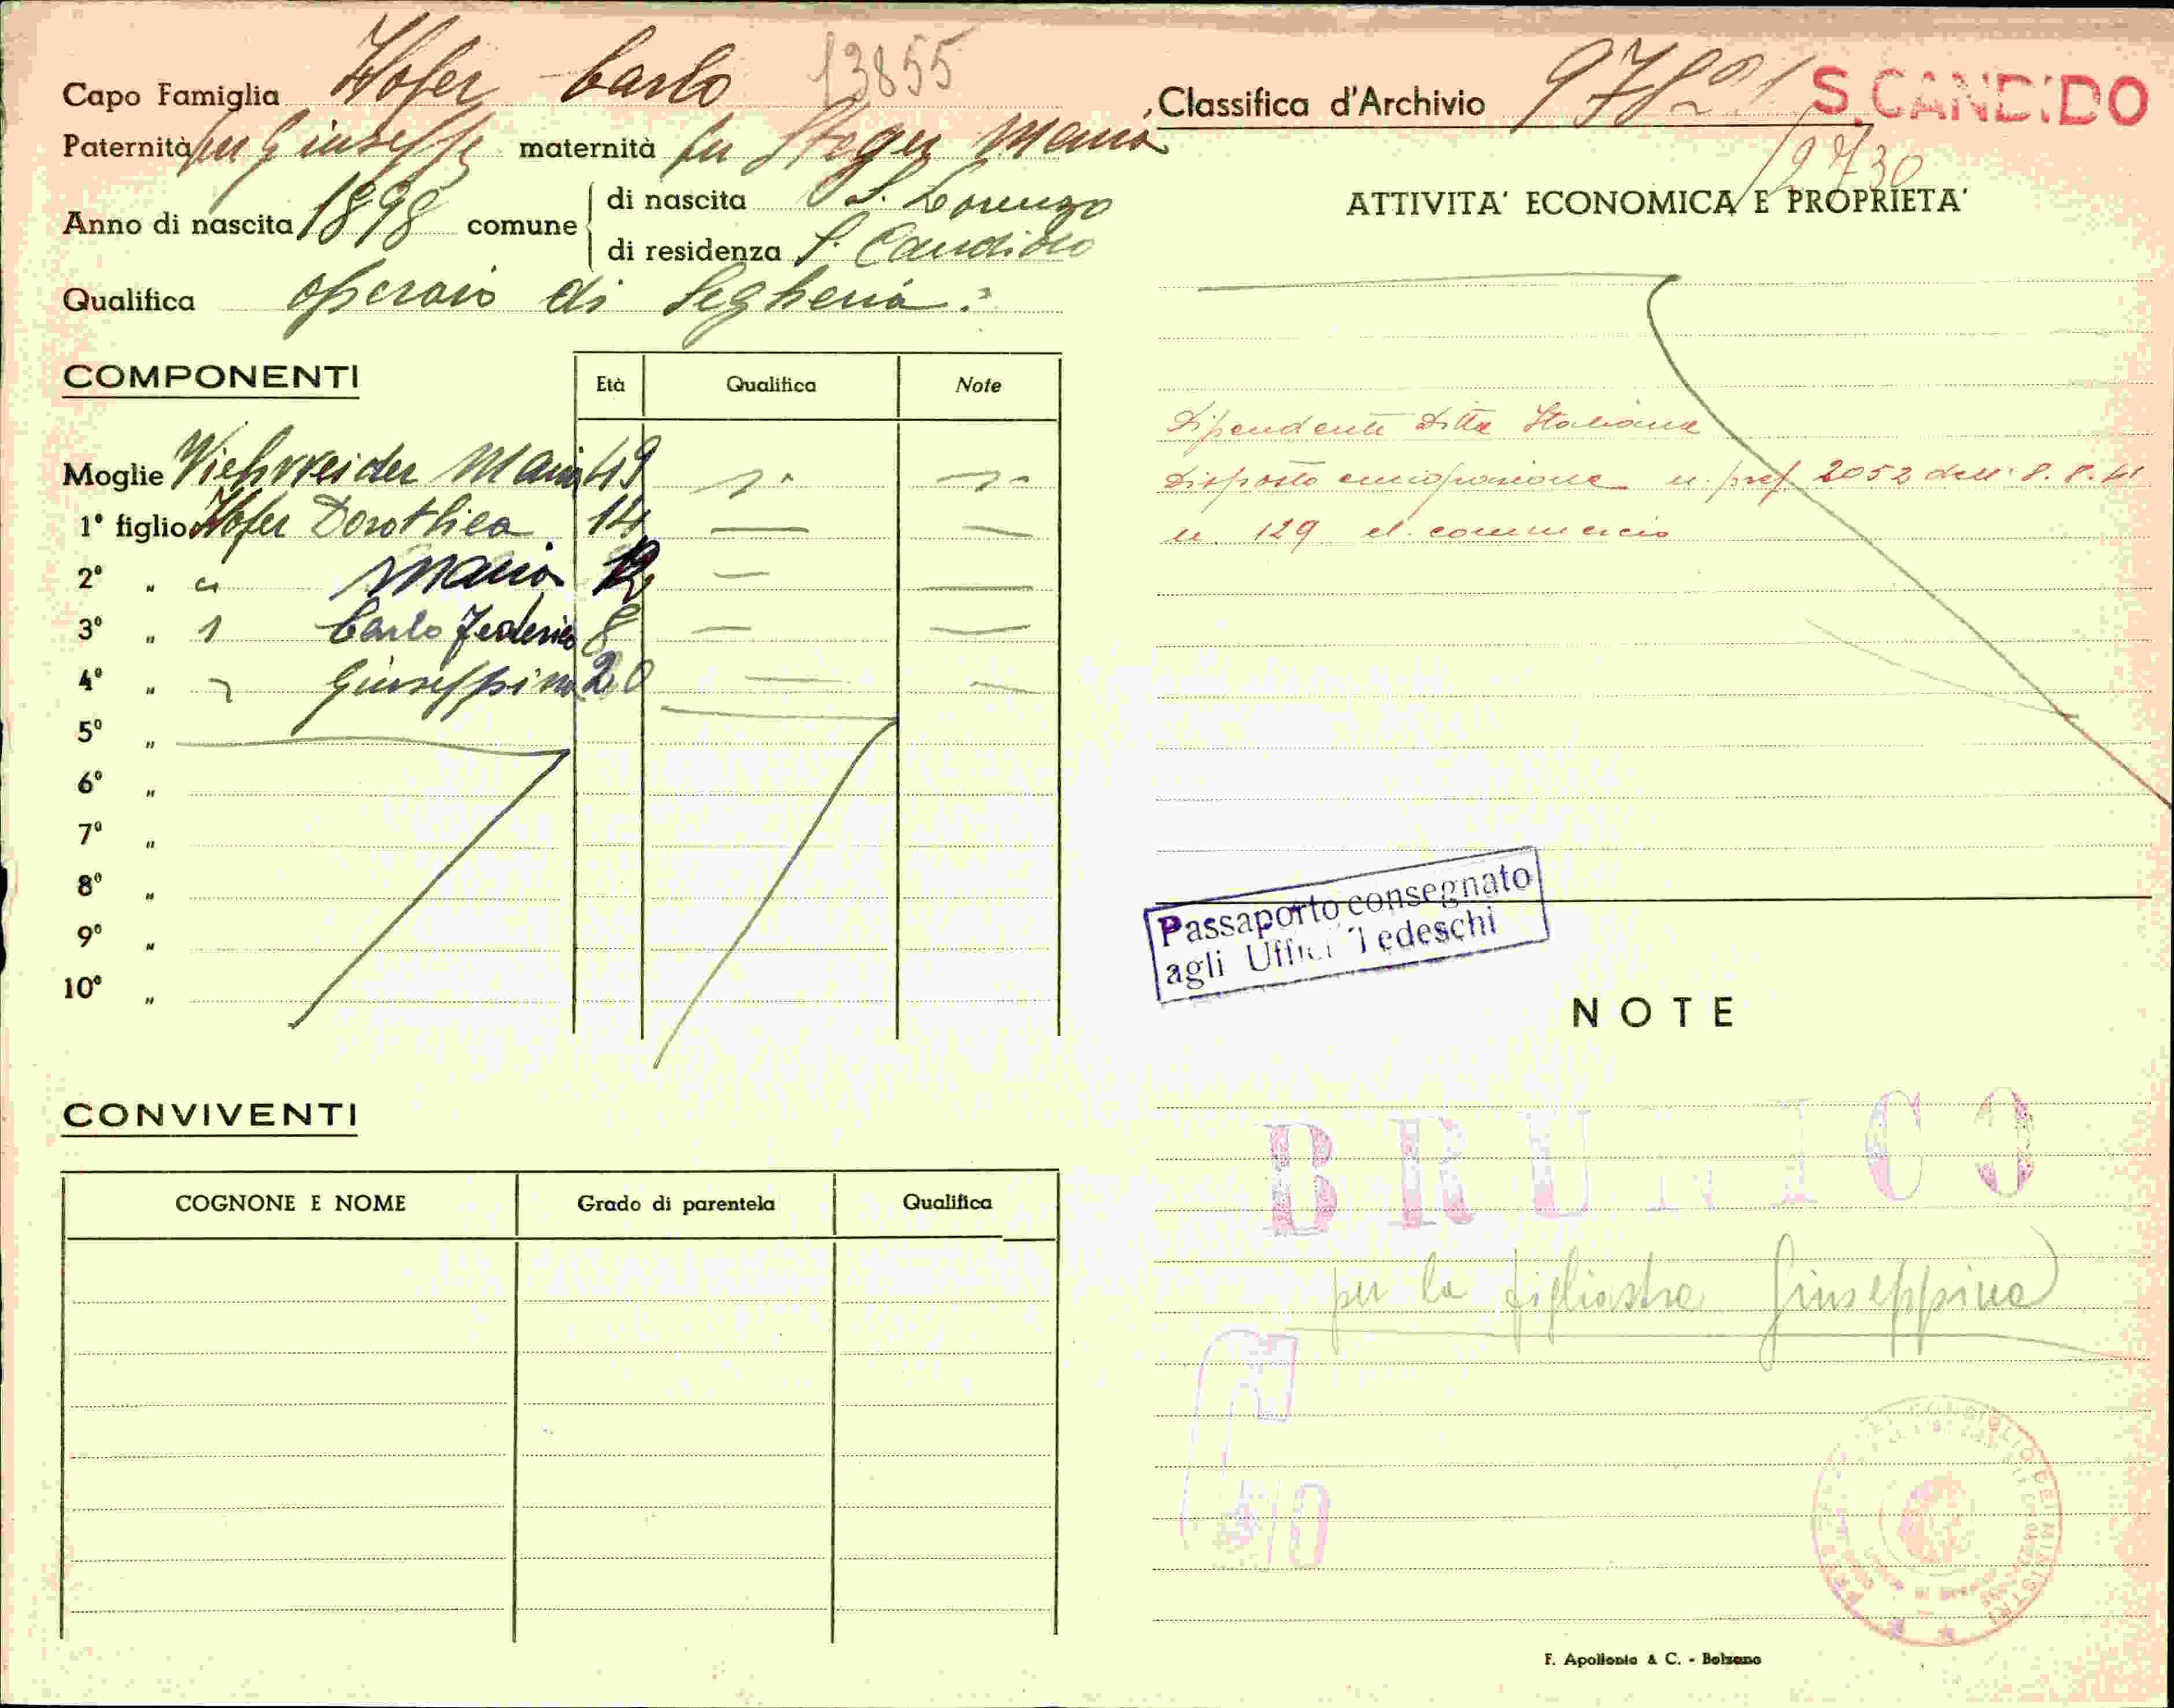 Capo Famiglia Hofer Carlo 13855
Paternità fu Giuseppe maternità fu Steger Maria
Anno di nascita 1898 comune
di nascita S. Lorenzo
di residenza S. Candido
Qualifica operaio di Segheria
COMPONENTI
Età Qualifica Note
Moglie Maria 49
1° figlio Hofer Dorothea 14
2° " " Maria 12
3° " Carlo Federico 8
4° " Giuseppina 20
5° "
6° "
7° "
8° "
9° "
10° "
CONVIVENTI
COGNONE E NOME Grado di parentela Qualifica
Classifica d'Archivio S. CANDIDO
2730
ATTIVITA' ECONOMICA E PROPRIETA'
Dipendente Ditta Italiana
disposto emigrazione n. pref. 2052 dell' 8.8.41
n. 129 el. commercio
Passaporto consegnato
agli Uffici Tedeschi
NOTE
BRUNICO
per la figliastra Giuseppina
F. Apollonio & C. - Bolzano